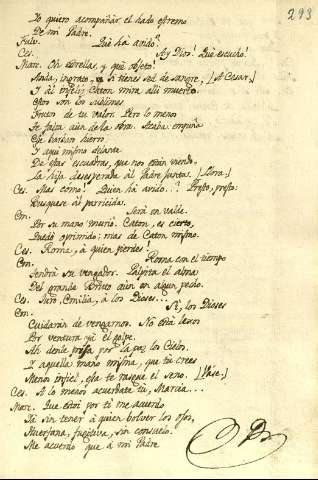 293
Yo quiero acompañar el hado extremo
De mi Padre.
Fulv. Qué há avido?
Ces. Ay Dios! Qué escucho!
Marc. Oh estrellas, y qué objeto!
Anda, ingrato, si tienes sed de sangre, (A Cesar.)
Y al infeliz Caton mira allí muerto.
Estos son los sublimes
Frutos de tu valor. Pero lo menos
Te falta aún de la obra. Acaba empuña
Ese barbaro hierro,
Y aquí mismo delante
De estas esquadras, que nos están viendo,
La hija desesperada al Padre junta. (Llora.)
Ces. Mas como! Quien há avido..? Presto, presto:
Busquese al parricida.
Em. Será en valde.
Por su mano murió. Caton, es cierto,
Quedó oprimido; mas de Caton mismo.
Ces. Roma, á quien pierdes!
Em. Roma con el tiempo
Tendrá su vengador. Palpita el alma
Del grande Bruto aún en algun pecho.
Ces. Juro, Emilia, á los Dioses...
Em. Sí, los Dioses
Cuidarán de vengarnos. No está lexos
Por ventura yá el golpe.
Ah denle prisa por la paz los Cielos.
Y aquella mano misma, que tú crees
Menos infiel, esa te rasgue el seno. (Vase.)
Ces. A lo menos acuerdate tú, Marcia...
Marc. Que estoi por ti me acuerdo
Yá sin tener á quien bolver los ojos,
Huerfana, fugitiva, sin consuelo.
Me acuerdo que á mi Padre